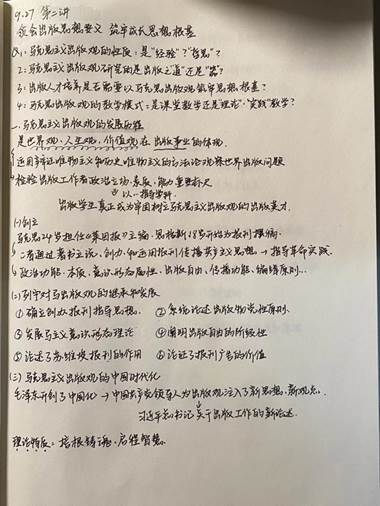 9.27 第二讲
领会出版思想要义 筑牢成长思想根基
Q1:马克思主义出版观的性质:是"经验"?"哲思"?
2:马克思主义出版观研究的是出版之"道"还是"器"?
3:出版人才培养是否需要以马克思主义出版观筑牢思想根基?
4:马克思主义出版观的教学模式:是课堂教学还是"理论+实践"教学?
一、马克思主义出版观的发展历程
是世界观、人生观、价值观在出版事业的体现
运用辩证唯物主义和历史唯物主义的方法论观察世界出版问题
检验出版工作者政治立场、素养、能力重要标尺
以…指导学科
出版学生真正成为牢固树立马克思主义出版观的出版英才。
(一)创立
马克思24岁担任《莱茵报》主编 恩格斯18岁开始为报刊撰稿
二者通过著书立说、创办和主编报刊传播共产主义思想→指导革命实践
政治功能、本质、意识形态属性、出版自由、传播功能、编辑原则…
(二)列宁对马出版观的继承和发展
①确立创办报刊指导思想 ②系统论述出版物党性原则
③发展马主义意识形态理论 ④阐明出版自由的阶级性
⑤论述了苏维埃报刊的作用 ⑥论证了报刊广告的价值
(三)马克思主义出版观的中国时代化
毛泽东开创了中国化→中国共产党领导人为出版观注入了新思想、新观点
习近平总书记关于出版工作的新论述
理论特质:培根铸魂、启程智慧